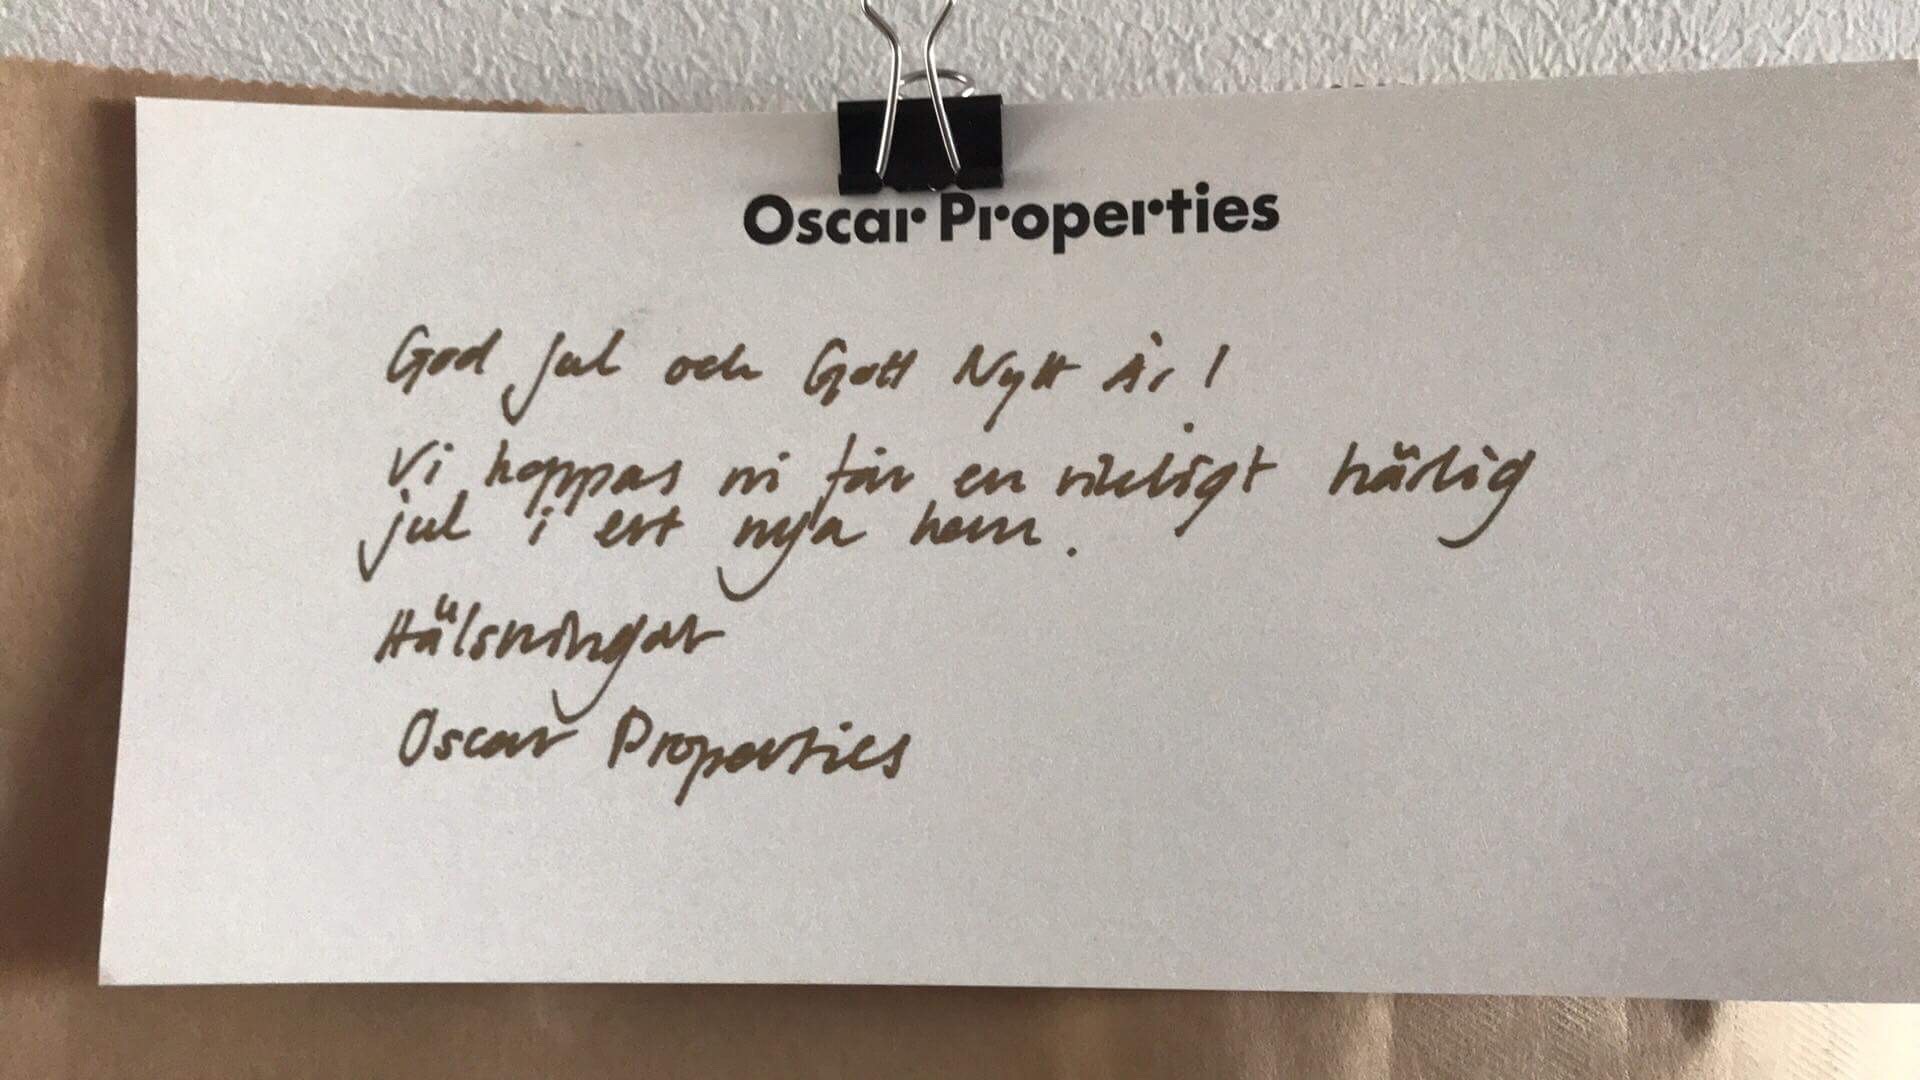 Oscar Properties
God Jul och Gott Nytt År!
Vi hoppas ni får en riktigt härlig
jul i ert nya hem.
Hälsningar
Oscar Properties